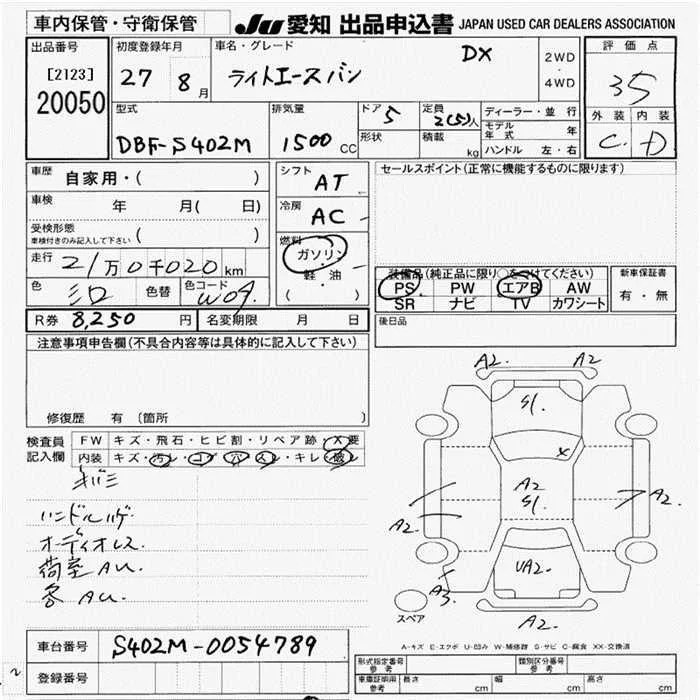 車内保管・守衛保管
JU 愛知 出品申込書 JAPAN USED CAR DEALERS ASSOCIATION
出品番号
[2123]
20050
初度登録年月
27 8月
車名・グレード
ライトエースバン DX
2WD
・
4WD
評価点
35
外装 内装
C D
型式
DBF-S402M
排気量
1500 CC
ドア 5
形状
定員 2(5)人
積載 kg
ディーラー・並行
モデル年式 年
ハンドル 左・右
車歴 自家用・( )
車検 年 月( 日)
受検形態
車検付きのみ記入して下さい ( )
走行 21万0千020km
色 シロ 色替 色コード W09
R券 8,250円 名変期限 月 日
シフト AT
冷房 AC
燃料 ガソリン
・
軽・油
( )
セールスポイント(正常に機能するものに限ります)
装備品(純正品に限り○をつけてください)
PS PW エアB AW
SR ナビ TV カワシート
新車保証書
有・無
後日品
注意事項申告欄(不具合内容等は具体的に記入して下さい)
修復歴 有〔箇所 〕
検査員記入欄
FW キズ・飛石・ヒビ割・リペア跡・X要
内装 キズ・汚レ・コゲ・穴・スレ・キレ・破レ
キバミ
ハンドルハゲ
オーディオレス.
荷室 AU.
客 AU.
A2. A2
S1.
X
A2
S1.
A2. A2.
UA2.
A3.
A2.
スペア
A-キズ E-エクボ U-凹み W-補修跡 S-サビ C-腐食 XX-交換済
車台番号 S402M-0054789
登録番号
形式指定番号 参考
類別区分番号 参考
車庫証明用 参考 長さ cm 幅 cm 高さ cm